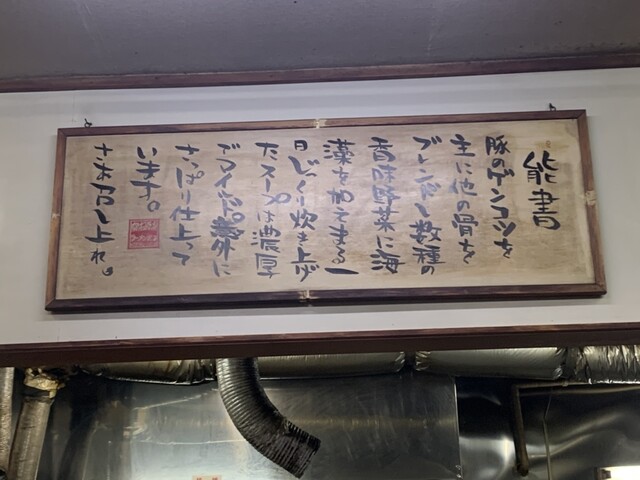 能書
豚のゲンコツを
主に他の骨を
ブレンドし数種の
香味野菜に海
藻を加えまる一
日じっくり炊き上げ
たスープは濃厚
でマイルド。意外に
さっぱり仕上って
います。
さあ召し上れ。